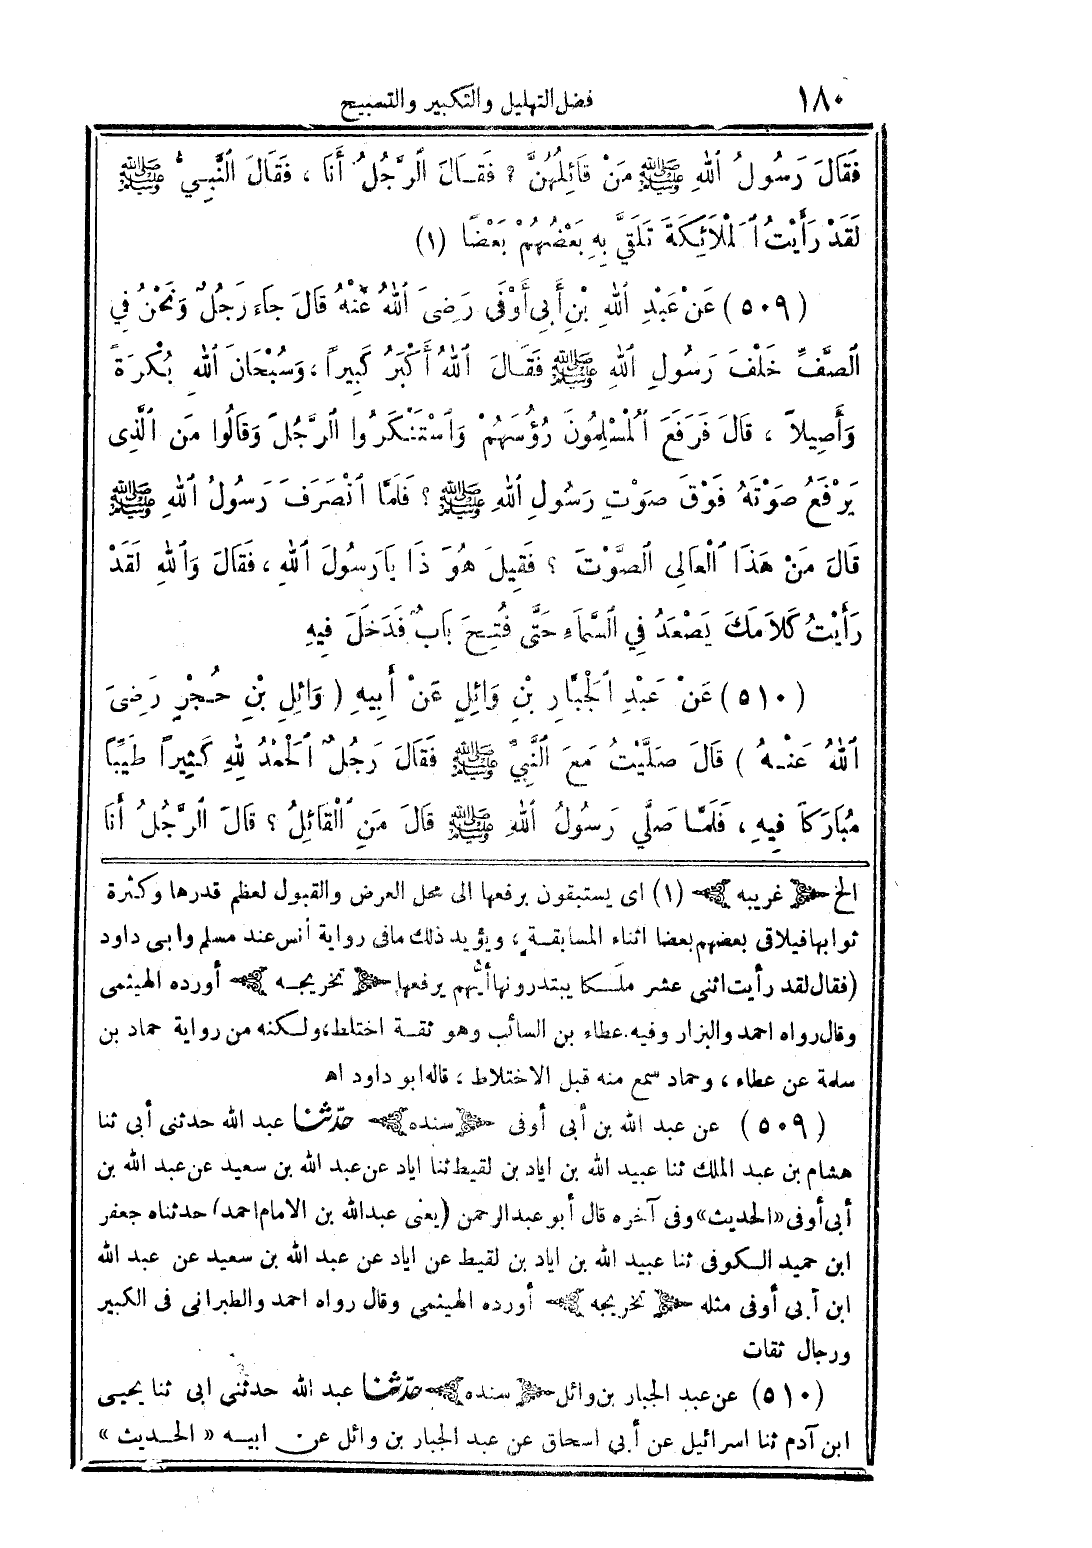 ١٨٠ فضل التهليل والتكبير والتسبيح
فَقَالَ رَسُولُ ٱللهِ ﷺ مَنْ قَائِلُهُنَّ ؟ فَقَالَ ٱلرَّجُلُ أَنَا ، فَقَالَ ٱلنَّبِيُّ ﷺ
لَقَدْ رَأَيْتُ ٱلْمَلَائِكَةَ تَلَقَّى بِهِ بَعْضُهُمْ بَعْضًا (١)
(٥٠٩) عَنْ عَبْدِ ٱللهِ بْنِ أَبِي أَوْفَى رَضِيَ ٱللهُ عَنْهُ قَالَ جَاءَ رَجُلٌ وَنَحْنُ فِي
ٱلصَّفِّ خَلْفَ رَسُولِ ٱللهِ ﷺ فَقَالَ ٱللهُ أَكْبَرُ كَبِيرًا ، وَسُبْحَانَ ٱللهِ بُكْرَةً
وَأَصِيلاً ، قَالَ فَرَفَعَ ٱلْمُسْلِمُونَ رُؤُسَهُمْ وَٱسْتَنْكَرُوا ٱلرَّجُلَ وَقَالُوا مَنِ ٱلَّذِى
يَرْفَعُ صَوْتَهُ فَوْقَ صَوْتِ رَسُولِ ٱللهِ ﷺ ؟ فَلَمَّا ٱنْصَرَفَ رَسُولُ ٱللهِ ﷺ
قَالَ مَنْ هَذَا ٱلْعَالِى ٱلصَّوْتَ ؟ فَقِيلَ هُوَ ذَا يَارَسُولَ ٱللهِ ، فَقَالَ وَٱللهِ لَقَدْ
رَأَيْتُ كَلَامَكَ يَصْعَدُ فِي ٱلسَّمَاءِ حَتَّى فُتِحَ بَابٌ فَدَخَلَ فِيهِ
(٥١٠) عَنْ عَبْدِ ٱلْجَبَّارِ بْنِ وَائِلٍ عَنْ أَبِيهِ (وَائِلِ بْنِ حُجْرٍ رَضِىَ
ٱللهُ عَنْهُ) قَالَ صَلَّيْتُ مَعَ ٱلنَّبِيِّ ﷺ فَقَالَ رَجُلٌ ٱلْحَمْدُ لِلهِ كَثِيرًا طَيِّبًا
مُبَارَكًا فِيهِ ، فَلَمَّا صَلَّى رَسُولُ ٱللهِ ﷺ قَالَ مَنِ ٱلْقَائِلُ ؟ قَالَ ٱلرَّجُلُ أَنَا
الخ ﴿غريبه﴾ (١) اى يستبقون برفعها الى محل العرض والقبول لعظم قدرها وكثرة
ثوابها فيلاقى بعضهم بعضا اثناء المسابقة ، ويؤيد ذلك مافى رواية أنس عند مسلم وابى داود
(فقال لقد رأيت اثنى عشر ملكا يبتدرونها أيُّهم يرفعها) ﴿تخريجه﴾ أورده الهيثمى
وقال رواه احمد والبزار وفيه عطاء بن السائب وهو ثقة اختلط، ولكنه من رواية حماد بن
سلمة عن عطاء ، وحماد سمع منه قبل الاختلاط ، قاله ابو داود اه
(٥٠٩) عن عبد الله بن أبى أوفى ﴿سنده﴾ حدّثنا عبد الله حدثنى أبى ثنا
هشام بن عبد الملك ثنا عبيد الله بن اياد بن لقيط ثنا اياد عن عبد الله بن سعيد عن عبد الله بن
أبى أوفى «الحديث» وفى آخره قال أبو عبد الرحمن (يعنى عبد الله بن الامام احمد) حدثناه جعفر
ابن حميد الكوفى ثنا عبيد الله بن اياد بن لقيط عن اياد عن عبد الله بن سعيد عن عبد الله
ابن أبى أوفى مثله ﴿تخريجه﴾ أورده الهيثمى وقال رواه احمد والطبرانى فى الكبير
ورجال ثقات
(٥١٠) عن عبد الجبار بن وائل ﴿سنده﴾ حدّثنا عبد الله حدثنى ابى ثنا يحيى
ابن آدم ثنا اسرائيل عن أبى اسحاق عن عبد الجبار بن وائل عن ابيه «الحديث»